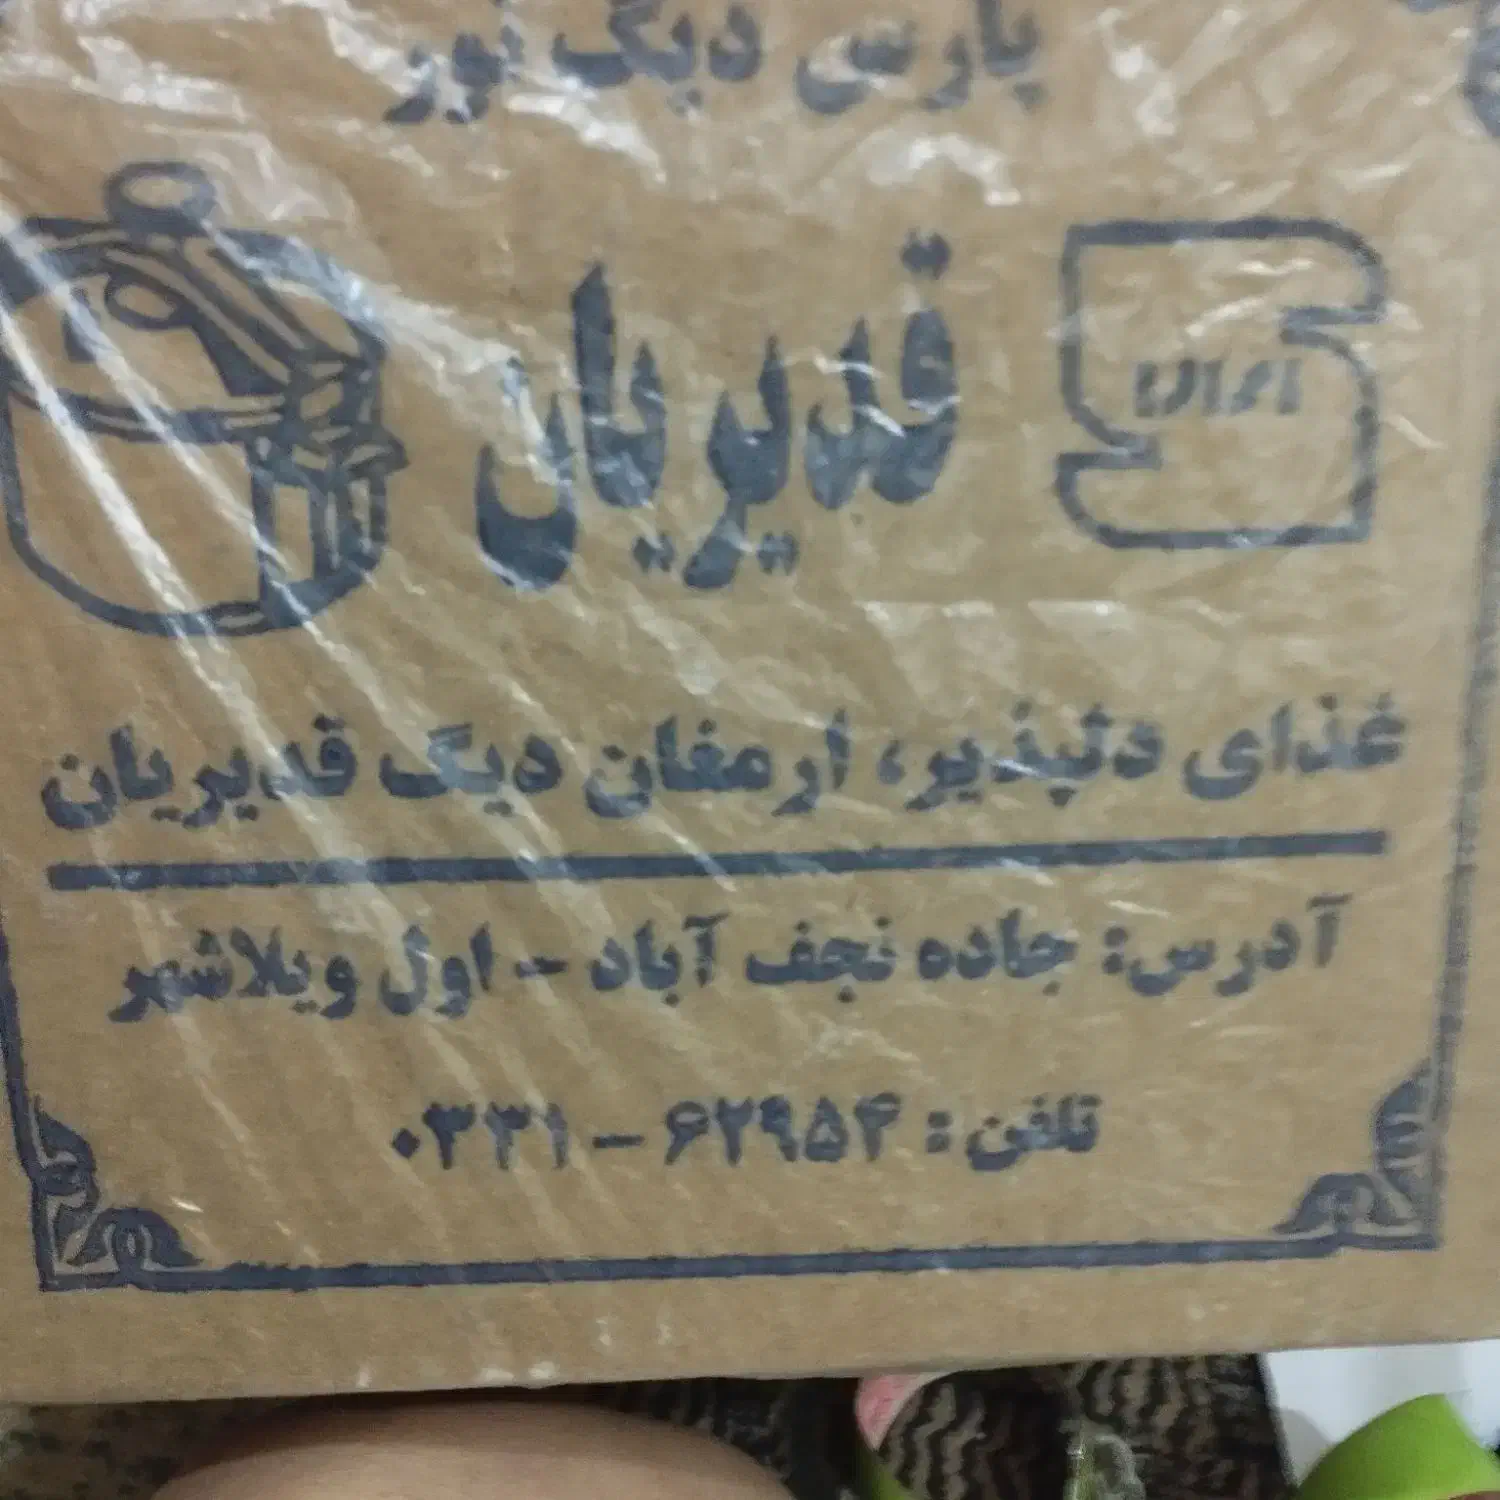 پارس دیگ نور
قدیریان
غذای دلپذیر، ارمغان دیگ قدیریان
آدرس: جاده نجف آباد - اول ویلاشهر
تلفن: ۶۲۹۵۴ - ۰۳۳۱